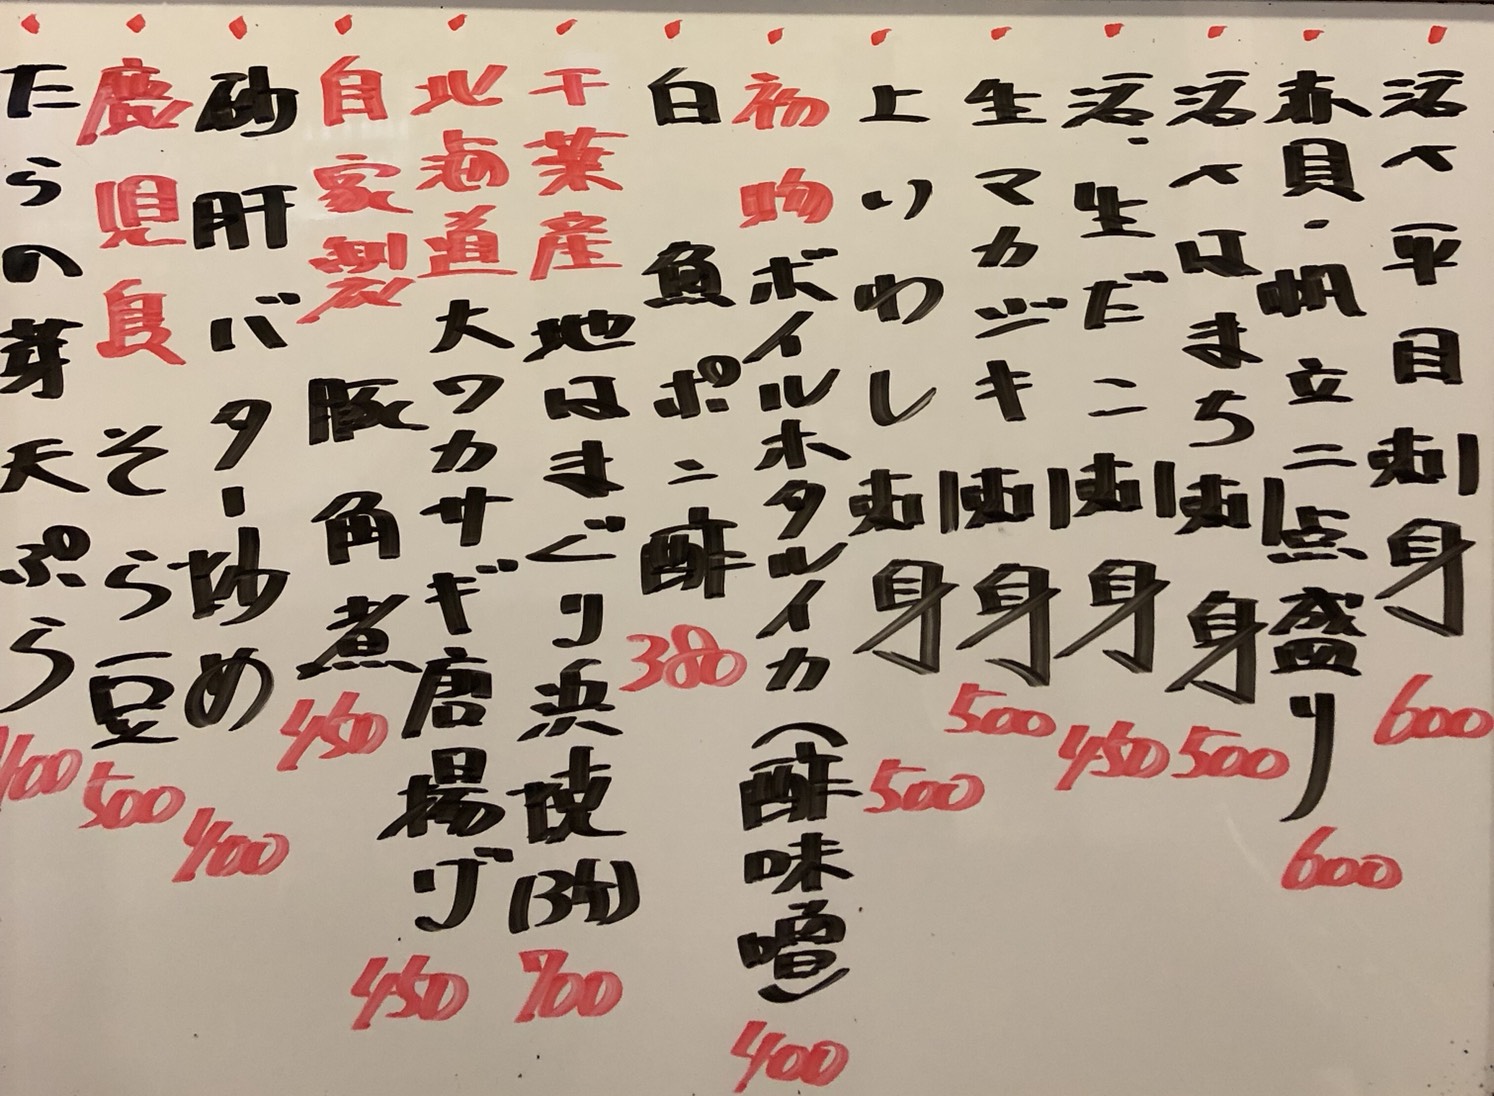 活〆平目刺身 600
赤貝・帆立二点盛り 600
活〆はまち刺身 500
活・生だこ刺身 450
生マカジキ刺身 500
上りわし刺身 500
初物 ボイルホタルイカ(酢味噌) 400
白魚ポン酢 380
千葉産 地はまぐり浜焼(3ケ) 700
北海道 大ワカサギ唐揚げ 450
自家製 豚角煮 450
砂肝バター炒め 400
鹿児島 そら豆 500
たらの芽天ぷら 400